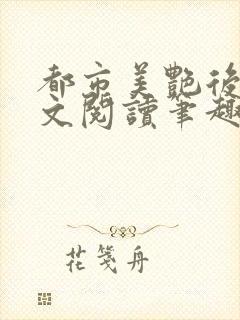 都市美艷後
文閱讀筆趣
花箋舟